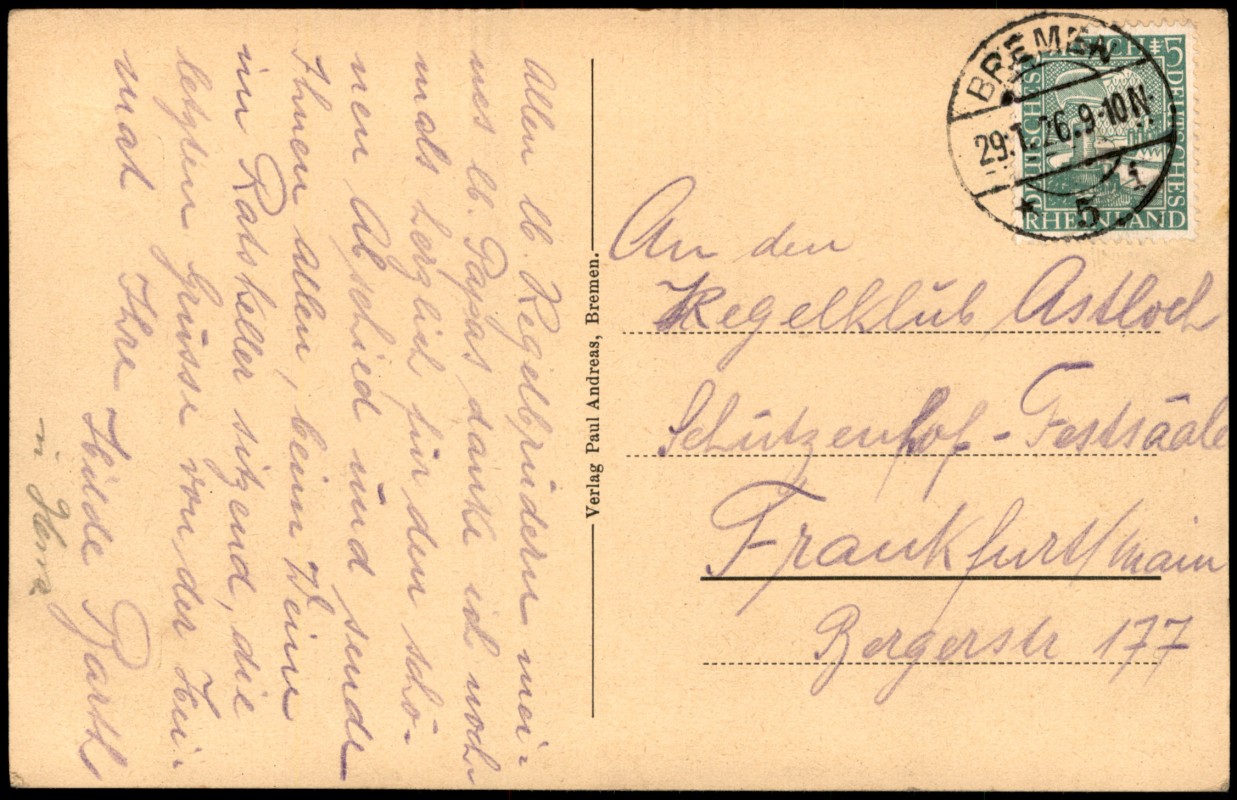 Allen lb. Kegelbrüdern mei-
nes lb. Papas danke ich noch-
mals herzlich für den schö-
nen Abschied und sende
Ihnen allen, beim Weine
im Ratskeller sitzend, die
letzten Grüsse von der Hei-
mat Ihre Hilde
Verlag Paul Andreas, Bremen.
DEUTSCHES REICH 5
DEUTSCHES
RHEINLAND
BREMEN
29.1.26.9-10N.
* 5 f
An den
Kegelklub Astloch
Schützenhof-Festsääle
Frankfurt/Main
Bergerstr 177